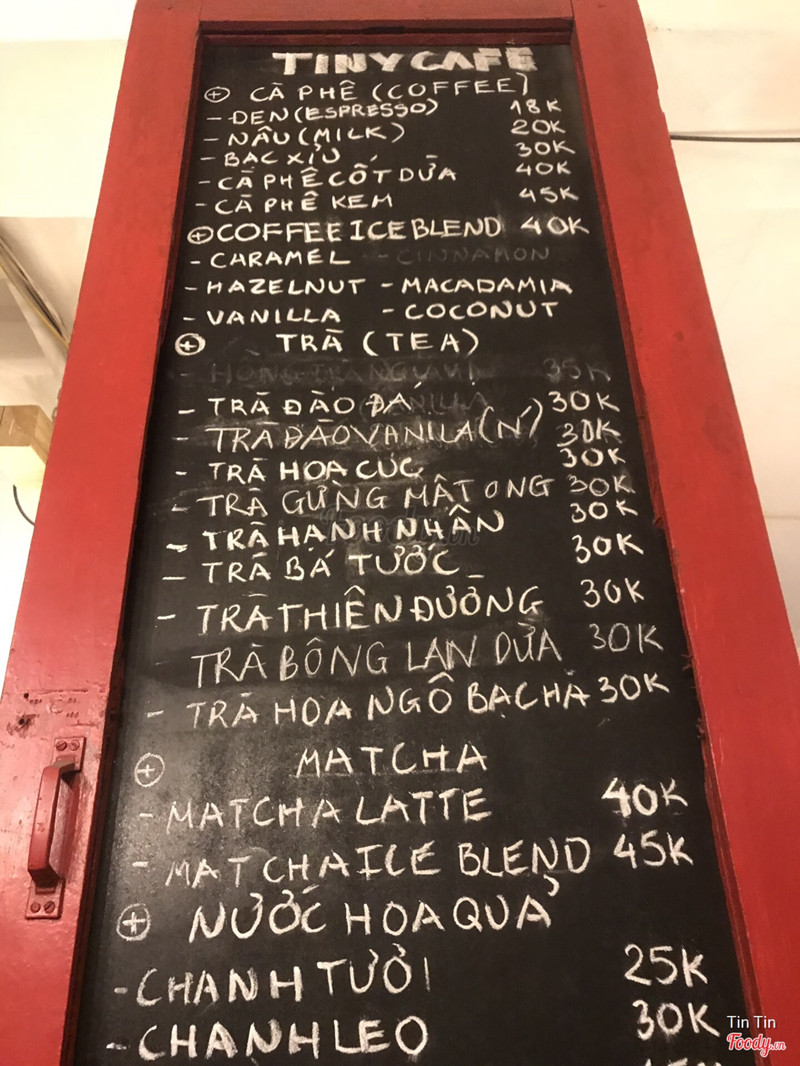 TINY CAFE
⊕ CÀ PHÊ (COFFEE)
- ĐEN (ESPRESSO) 18K
- NÂU (MILK) 20K
- BẠC XỈU 30K
- CÀ PHÊ CỐT DỪA 40K
- CÀ PHÊ KEM 45K
⊕ COFFEE ICE BLEND 40K
- CARAMEL - CINNAMON
- HAZELNUT - MACADAMIA
- VANILLA - COCONUT
⊕ TRÀ (TEA)
35K
- TRÀ ĐÀO ĐÁ 30K
- TRÀ ĐÀO VANILA (N') 30K
- TRÀ HOA CÚC 30K
- TRÀ GỪNG MẬT ONG 30K
- TRÀ HẠNH NHÂN 30K
- TRÀ BÁ TƯỚC 30K
- TRÀ THIÊN ĐƯỜNG 30K
- TRÀ BÔNG LAN DỪA 30K
- TRÀ HOA NGÔ BẠC HÀ 30K
⊕ MATCHA
- MATCHA LATTE 40K
- MATCHA ICE BLEND 45K
⊕ NƯỚC HOA QUẢ
- CHANH TƯƠI 25K
- CHANH LEO 30K
Tin Tin
Foody.vn